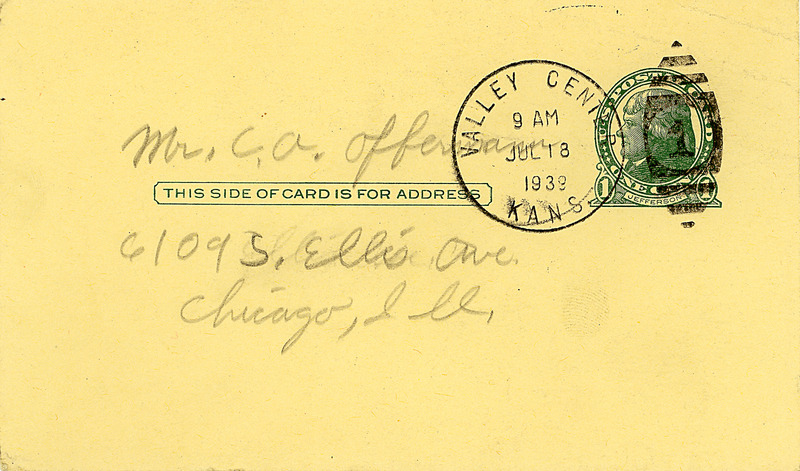 VALLEY CENTER
9 AM
JUL 18
1939
KANS
1
U.S. POSTAL CARD
ONE CENT
1 1
JEFFERSON
Mr. C. A. Offermann
THIS SIDE OF CARD IS FOR ADDRESS
6109 S. Ellis Ave.
Chicago, Ill.